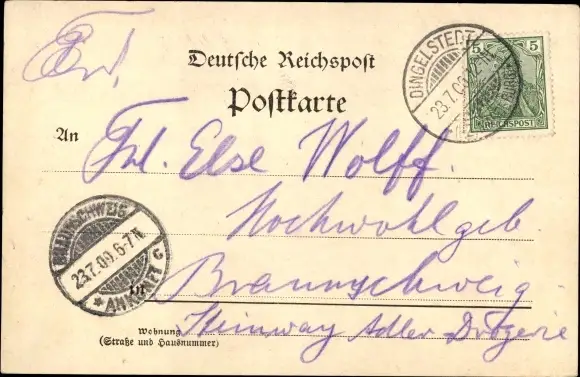 Frl.
Deutsche Reichspost
Postkarte
DINGELSTEDT
23.7.00
5 5
REICHSPOST
An
Frl. Else Wolff.
Hochwohlgeb.
Braunschweig
Steinway Adler-Drogerie
BRAUNSCHWEIG
23.7.00.6-7N.
*ANKUNFT C
Wohnung
(Straße und Hausnummer)